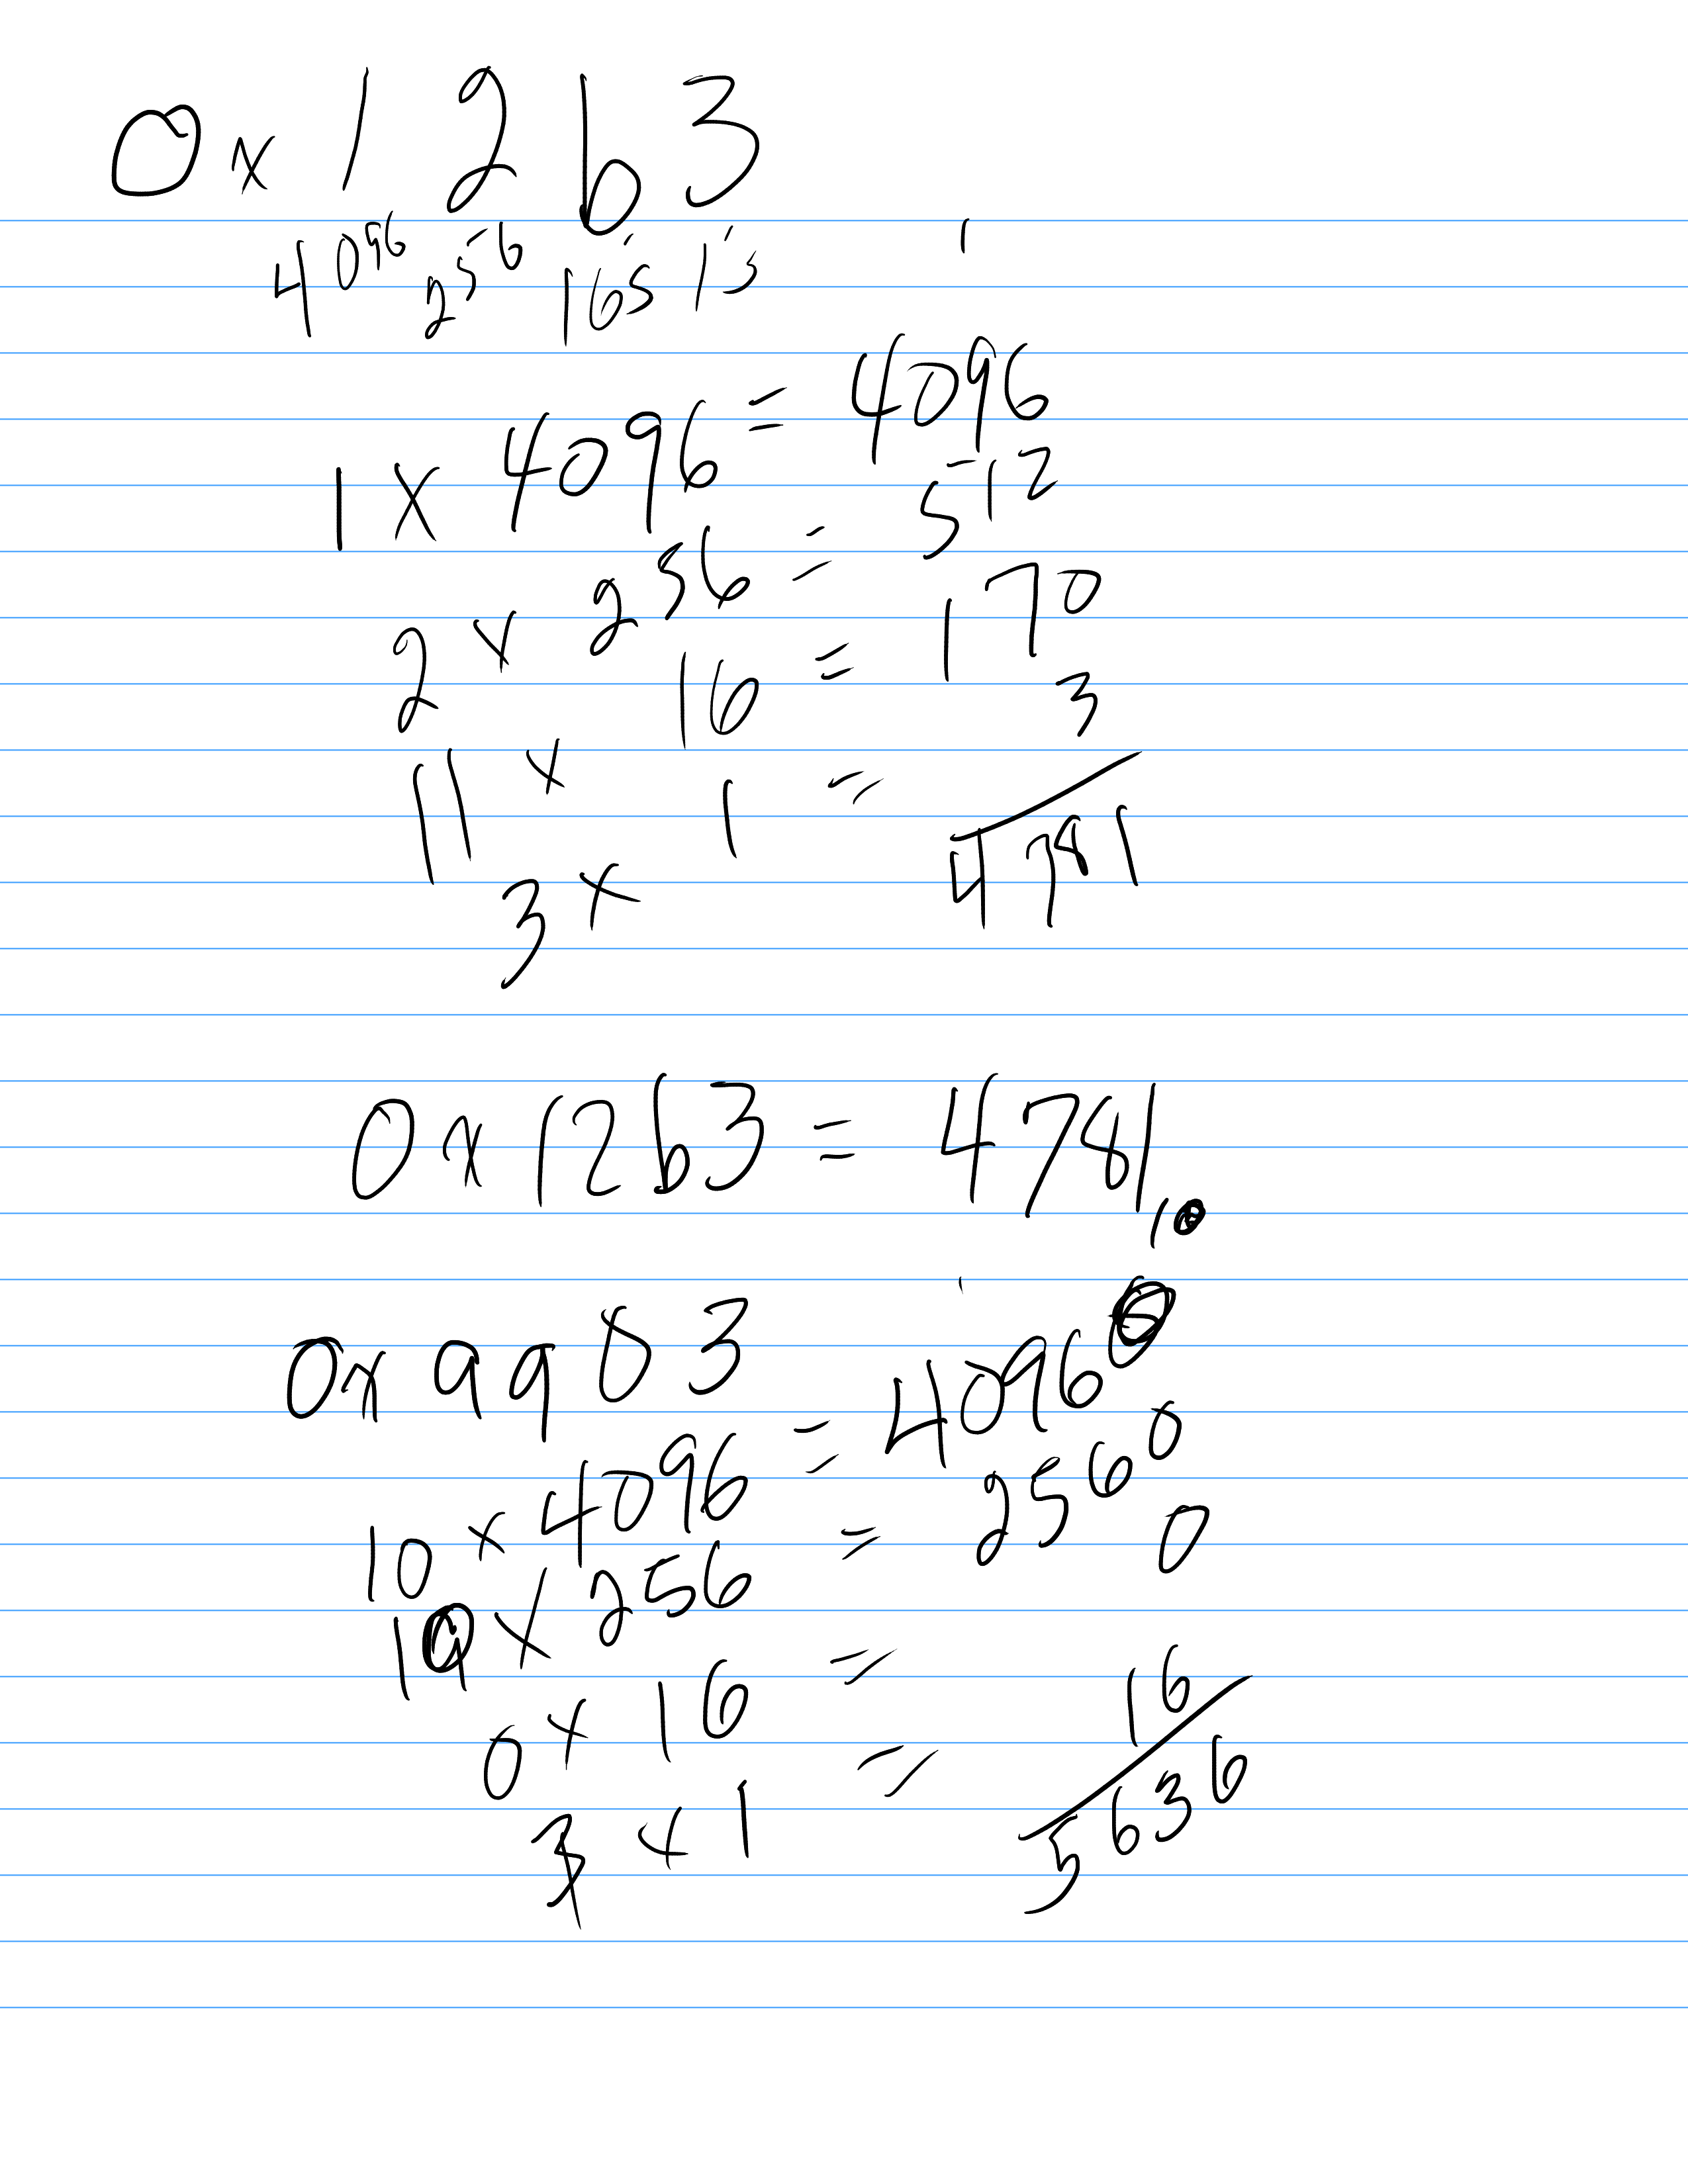 0x12b3
4096 256 16's 1's
1 x 4096 = 4096
2 x 256 = 512
11 x 16 = 170
3 x 1 = 3
4781
0x12b3 = 4781₁₀
0x a983
10 x 4096 = 40960
x 256 = 2560
0 x 16 = 0
x 1 = 16
5636